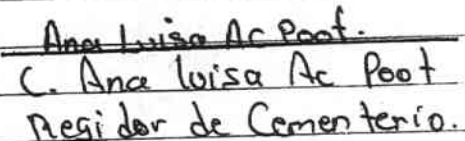 Ana Luisa Ac Poot.
C. Ana luisa Ac Poot
Regidor de Cementerio.